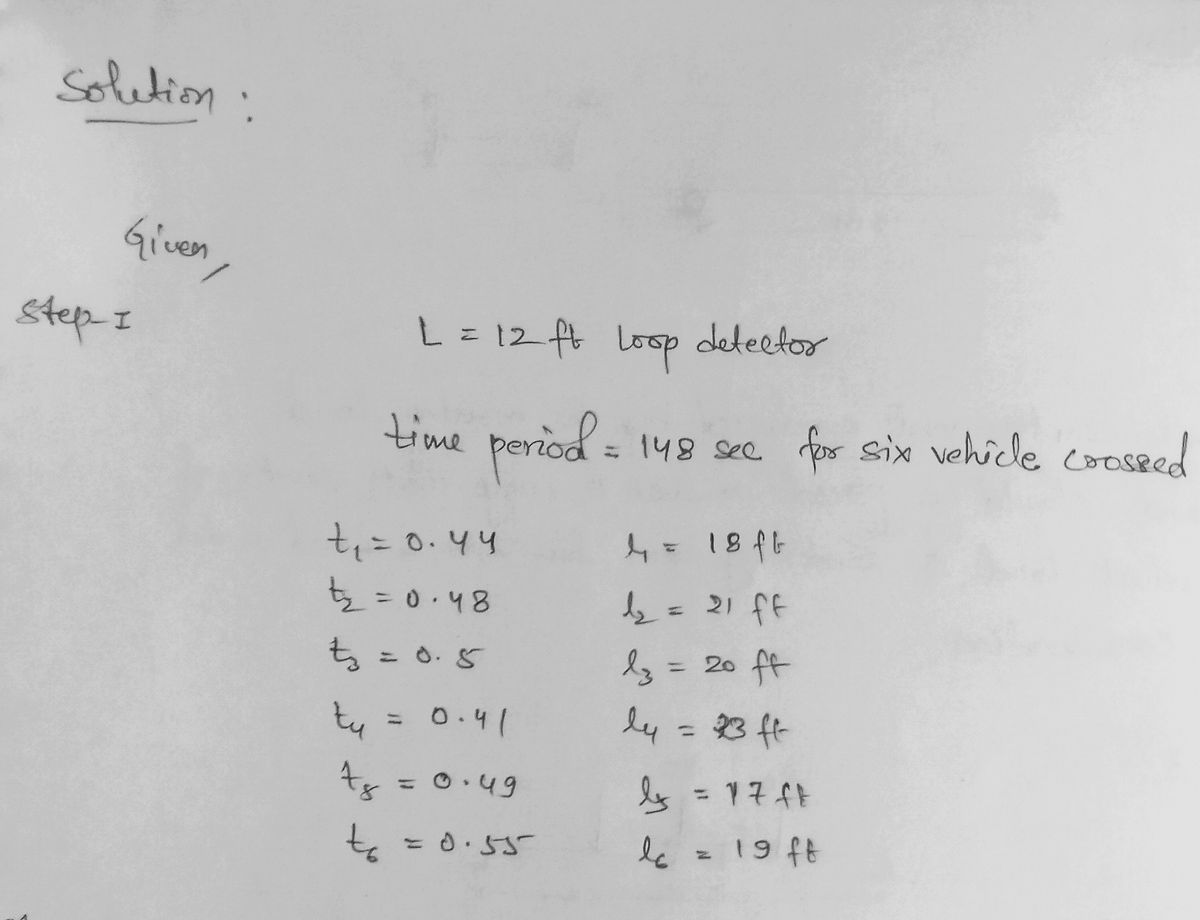 Solution :
Given,
Step-I
L = 12 ft loop detector
time period = 148 sec for six vehicle crossed
t₁ = 0.44 l₁ = 18 ft
t₂ = 0.48 l₂ = 21 ft
t₃ = 0.5 l₃ = 20 ft
t₄ = 0.41 l₄ = 23 ft
t₅ = 0.49 l₅ = 17 ft
t₆ = 0.55 l₆ = 19 ft